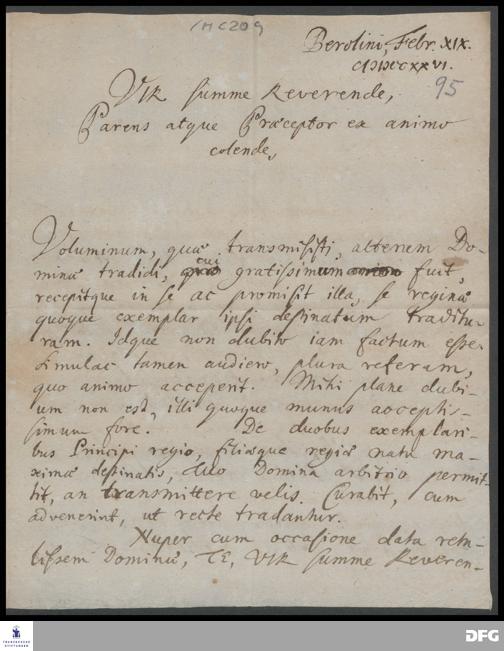 1 HC209
Berolini, Febr. XIX.
CIƆIƆCCXXVI.
95
VIR summe Reverende,
Parens atque Præceptor ex animo
colende,
Voluminum, quæ transmisisti, alterum Do-
minæ tradidi, cui gratissimum fuit,
recepitque in se ac promisit illa, se reginæ
quoque exemplar ipsi destinatum traditu-
ram. Idque non dubito iam factum esse.
Simulac tamen audiero, plura referam,
quo animo acceperit. Mihi plane dubi-
um non est, illi quoque munus acceptis-
simum fore. De duobus exemplari-
bus Principi regio, filiæque regiæ natu ma-
ximæ destinatis, Tuo Domina arbitrio permit-
tit, an transmittere velis. Curabit, cum
advenerint, ut recte tradantur.
Nuper cum occasione data retu-
lissem Dominæ, TE, VIR summe Reveren-
FRANCKESCHE
STIFTUNGEN
DFG